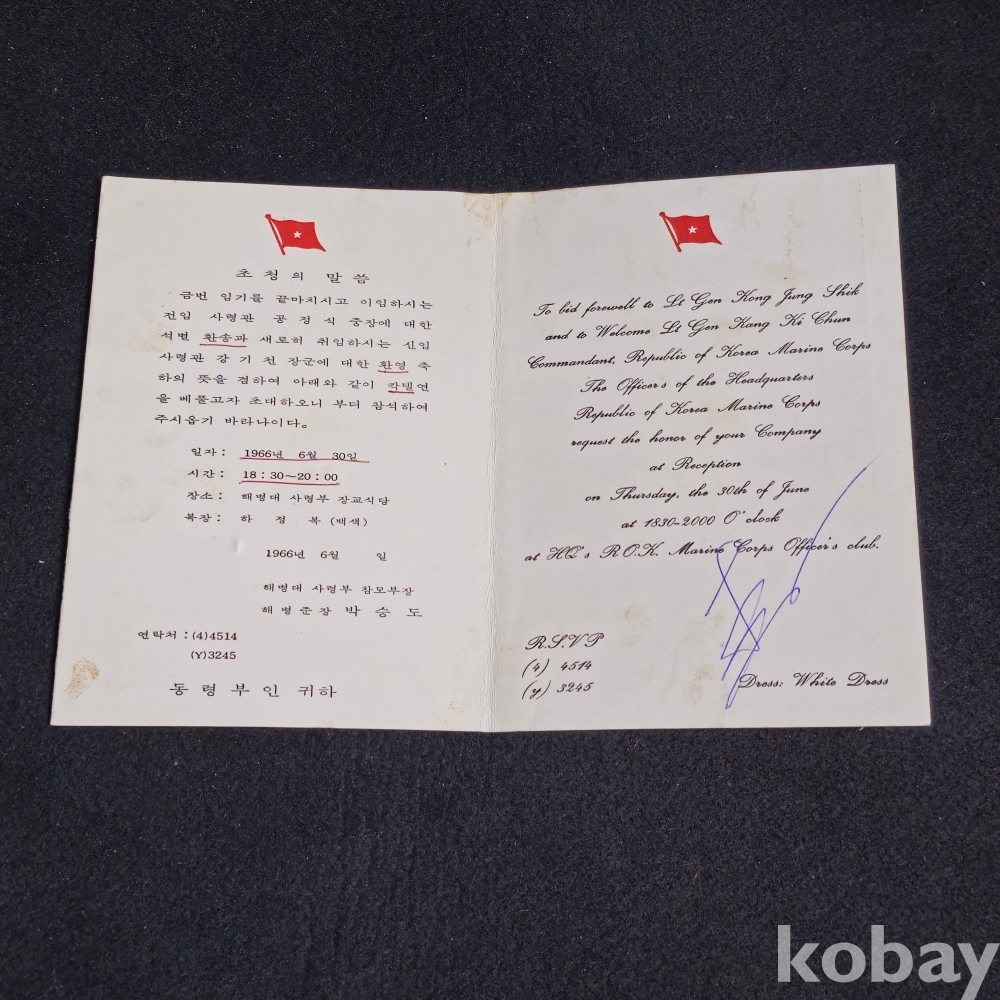 초청의 말씀
금번 임기를 끝마치시고 이임하시는
전임 사령관 공정식 중장에 대한
석별 환송과 새로히 취임하시는 신임
사령관 강기천 장군에 대한 환영 축
하의 뜻을 겸하여 아래와 같이 칵텔연
을 베풀고자 초대하오니 부디 참석하여
주시옵기 바라나이다.
일자: 1966년 6월 30일
시간: 18:30~20:00
장소: 해병대 사령부 장교식당
복장: 하정복(백색)
1966년 6월 일
해병대 사령부 참모부장
해병준장 박승도
연락처: (4)4514
(Y)3245
동령부인 귀하
To bid forewell to Lt Gen Kong Jung Shik
and to Welcome Lt Gen Kang Ki Chun
Commandant, Republic of Korea Marine Corps
The Officers of the Headquarters
Republic of Korea Marine Corps
request the honor of your Company
at Reception
on Thursday, the 30th of June
at 1830-2000 O'clock
at HQ's R.O.K. Marine Corps Officer's club.
R.S.V.P
(4) 4514
(y) 3245
Dress: White Dress
kobay